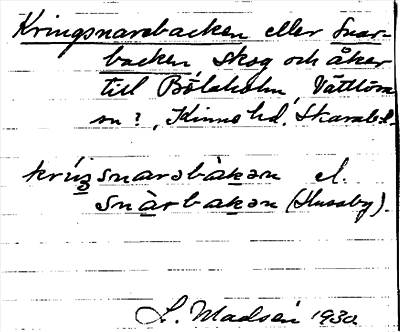 Kringsnarebacken eller Snar-
backen skog och åker
till Bölaholm, Vättlösa
sn?, Kinne hd. Skarab. l.
kríŋsnarəbàkən el.
snàrbakən (Husaby).
L. Madsén 1930